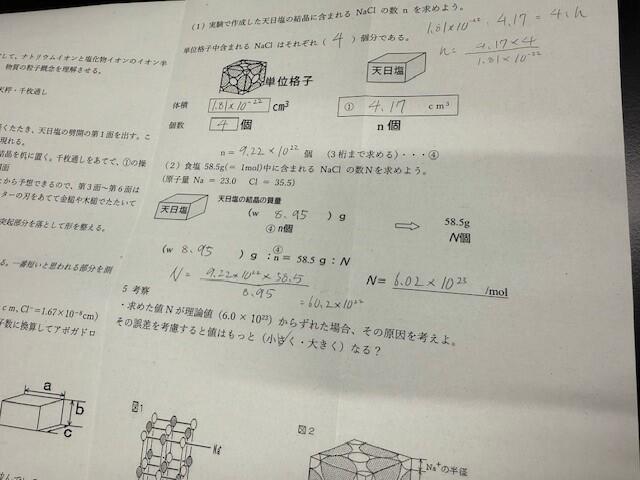 (1)実験で作成した天日塩の結晶に含まれる NaCl の数 n を求めよう。
1.81×10⁻²² : 4.17 = 4 : n
単位格子中含まれる NaCl はそれぞれ( 4 )個分である。
n = 4.17×4 / 1.81×10⁻²²
単位格子
天日塩
体積 1.81×10⁻²² cm³
① 4.17 cm³
個数 4 個
n 個
n = 9.22×10²² 個 (3桁まで求める)・・・④
(2)食塩 58.5g(= 1mol)中に含まれる NaCl の数Nを求めよう。
(原子量 Na = 23.0 Cl = 35.5)
天日塩
天日塩の結晶の質量
(w 8.95 )g
④ n個
58.5g
N個
(w 8.95 )g : ④n = 58.5g : N
N = 9.22×10²² × 58.5 / 8.95
= 60.2×10²²
N= 6.02×10²³ /mol
5 考察
・求めた値 N が理論値(6.0 × 10²³)からずれた場合、その原因を考えよ。
その誤差を考慮すると値はもっと(小さく・大きく)なる?
して、ナトリウムイオンと塩化物イオンのイオン半
物質の粒子概念を理解させる。
天秤・千枚通し
くたたき、天日塩の劈開の第1面を出す。こ
現れる。
結晶を机に置く。千枚通しをあてて、①の操
から予想できるので、第3面～第6面は
ターの刃をあてて金槌や木槌でたたいて
突起部分を落として形を整える。
る。一番短いと思われる部分を測
cm,Cl⁻=1.67×10⁻⁸cm)
子数に換算してアボガドロ
a
b
c
図1
図2
Na⁺の半径